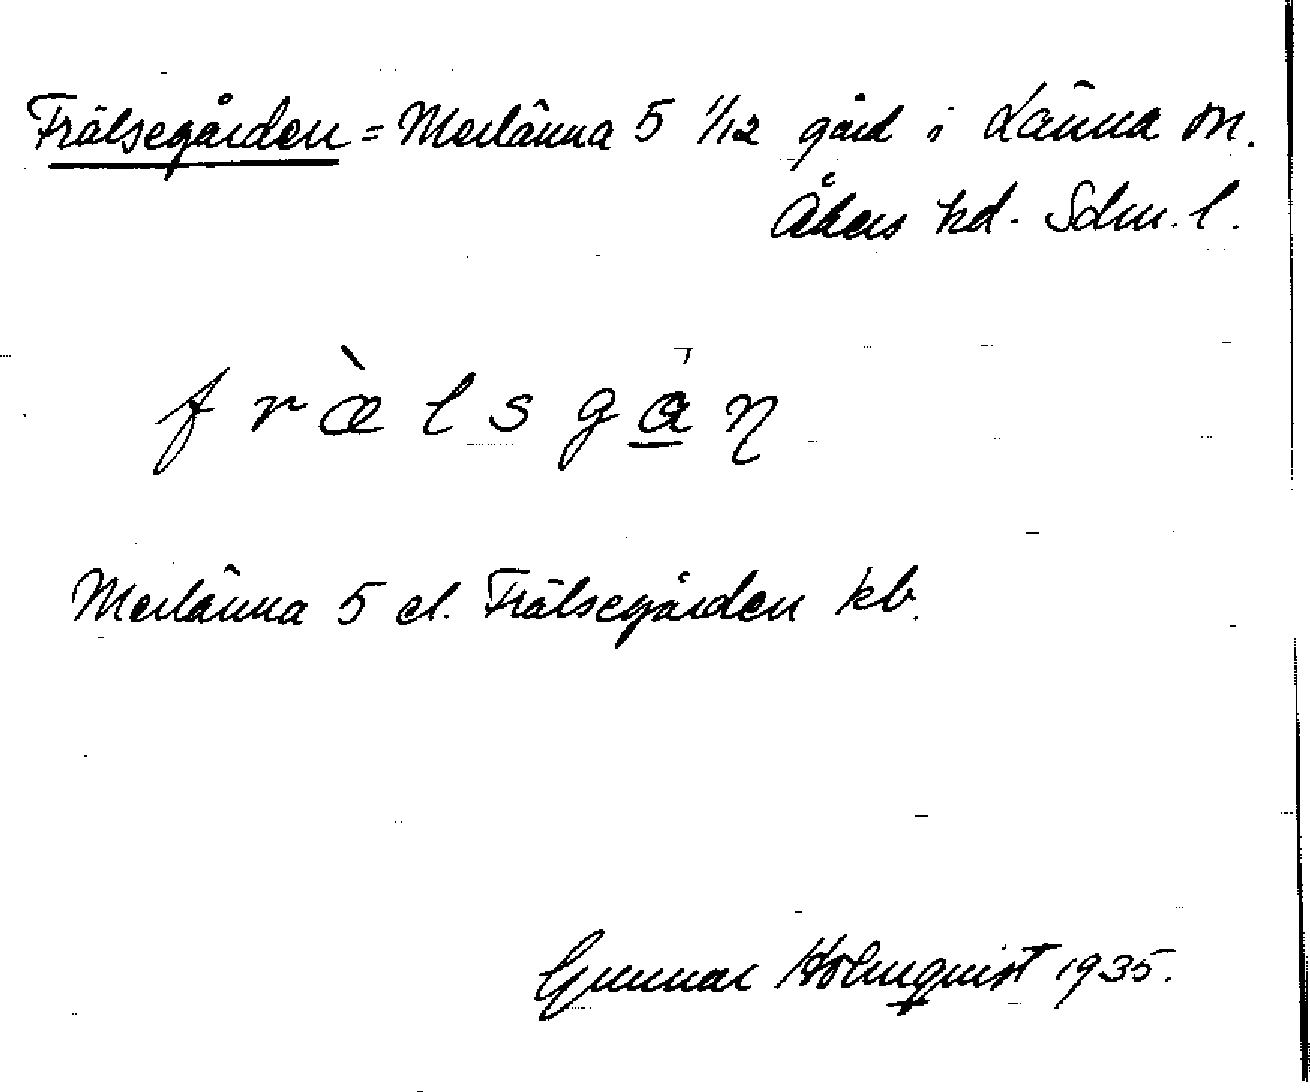 Frälsegården = Merlänna 5 1/12 gård i Länna sn.
Åkers hd. Södm. l.
fræ̀lsga̲ɳ
Merlänna 5 el. Frälsegården kb.
Gunnar Holmquist 1935.